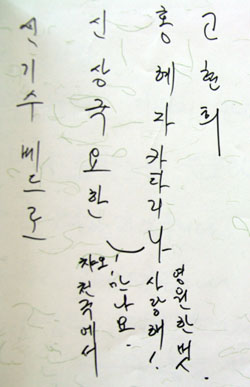 신기수 베드로
신상국요한
챠오!
천국에서
만나요.
홍혜자카타리나
사랑해!
고현희
영원한 벗.